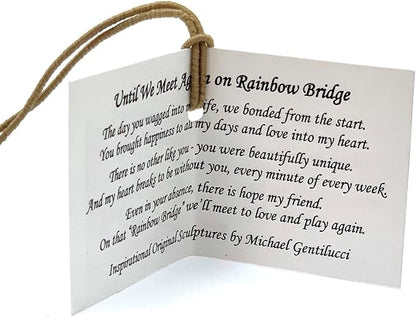 Until We Meet Again on Rainbow Bridge
The day you wagged into life, we bonded from the start.
You brought happiness to all my days and love into my heart.
There is no other like you - you were beautifully unique.
And my heart breaks to be without you, every minute of every week.
Even in your absence, there is hope my friend.
On that "Rainbow Bridge" we'll meet to love and play again.
Inspirational Original Sculptures by Michael Gentilucci